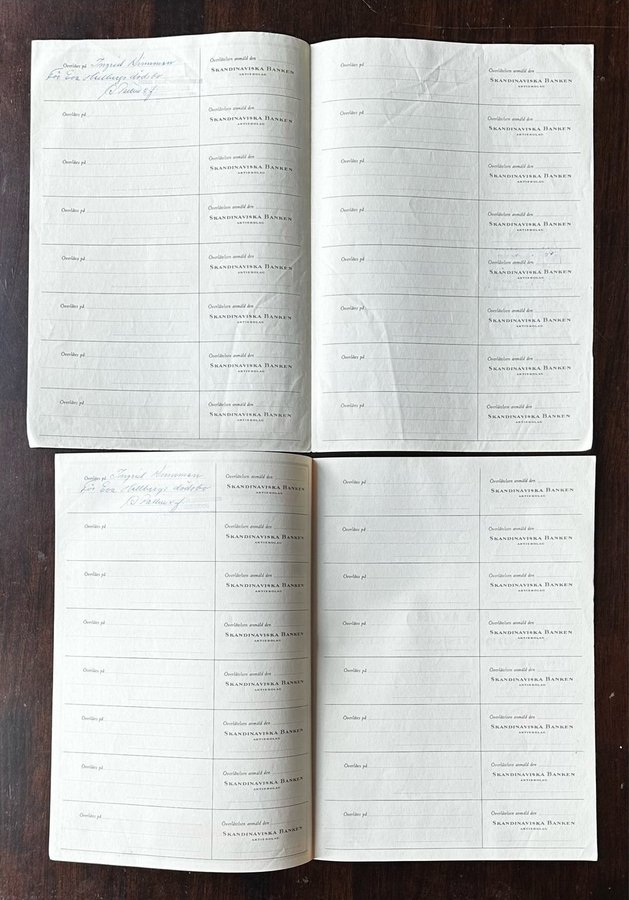 Överlåtes på Ingrid
För Eva dödsbo
Överlåtelsen anmäld den
SKANDINAVISKA BANKEN
AKTIEBOLAG
Överlåtes på
Överlåtelsen anmäld den
SKANDINAVISKA BANKEN
AKTIEBOLAG
Överlåtes på
Överlåtelsen anmäld den
SKANDINAVISKA BANKEN
AKTIEBOLAG
Överlåtes på
Överlåtelsen anmäld den
SKANDINAVISKA BANKEN
AKTIEBOLAG
Överlåtes på
Överlåtelsen anmäld den
SKANDINAVISKA BANKEN
AKTIEBOLAG
Överlåtes på
Överlåtelsen anmäld den
SKANDINAVISKA BANKEN
AKTIEBOLAG
Överlåtes på
Överlåtelsen anmäld den
SKANDINAVISKA BANKEN
AKTIEBOLAG
Överlåtes på
Överlåtelsen anmäld den
SKANDINAVISKA BANKEN
AKTIEBOLAG
Överlåtes på
Överlåtelsen anmäld den
SKANDINAVISKA BANKEN
AKTIEBOLAG
Överlåtes på
Överlåtelsen anmäld den
SKANDINAVISKA BANKEN
AKTIEBOLAG
Överlåtes på
Överlåtelsen anmäld den
SKANDINAVISKA BANKEN
AKTIEBOLAG
Överlåtes på
Överlåtelsen anmäld den
SKANDINAVISKA BANKEN
AKTIEBOLAG
Överlåtes på
Överlåtelsen anmäld den
SKANDINAVISKA BANKEN
AKTIEBOLAG
Överlåtes på
Överlåtelsen anmäld den
SKANDINAVISKA BANKEN
AKTIEBOLAG
Överlåtes på
Överlåtelsen anmäld den
SKANDINAVISKA BANKEN
AKTIEBOLAG
Överlåtes på
Överlåtelsen anmäld den
SKANDINAVISKA BANKEN
AKTIEBOLAG
Överlåtes på Ingrid
För Eva dödsbo
Överlåtelsen anmäld den
SKANDINAVISKA BANKEN
AKTIEBOLAG
Överlåtes på
Överlåtelsen anmäld den
SKANDINAVISKA BANKEN
AKTIEBOLAG
Överlåtes på
Överlåtelsen anmäld den
SKANDINAVISKA BANKEN
AKTIEBOLAG
Överlåtes på
Överlåtelsen anmäld den
SKANDINAVISKA BANKEN
AKTIEBOLAG
Överlåtes på
Överlåtelsen anmäld den
SKANDINAVISKA BANKEN
AKTIEBOLAG
Överlåtes på
Överlåtelsen anmäld den
SKANDINAVISKA BANKEN
AKTIEBOLAG
Överlåtes på
Överlåtelsen anmäld den
SKANDINAVISKA BANKEN
AKTIEBOLAG
Överlåtes på
Överlåtelsen anmäld den
SKANDINAVISKA BANKEN
AKTIEBOLAG
Överlåtes på
Överlåtelsen anmäld den
SKANDINAVISKA BANKEN
AKTIEBOLAG
Överlåtes på
Överlåtelsen anmäld den
SKANDINAVISKA BANKEN
AKTIEBOLAG
Överlåtes på
Överlåtelsen anmäld den
SKANDINAVISKA BANKEN
AKTIEBOLAG
Överlåtes på
Överlåtelsen anmäld den
SKANDINAVISKA BANKEN
AKTIEBOLAG
Överlåtes på
Överlåtelsen anmäld den
SKANDINAVISKA BANKEN
AKTIEBOLAG
Överlåtes på
Överlåtelsen anmäld den
SKANDINAVISKA BANKEN
AKTIEBOLAG
Överlåtes på
Överlåtelsen anmäld den
SKANDINAVISKA BANKEN
AKTIEBOLAG
Överlåtes på
Överlåtelsen anmäld den
SKANDINAVISKA BANKEN
AKTIEBOLAG